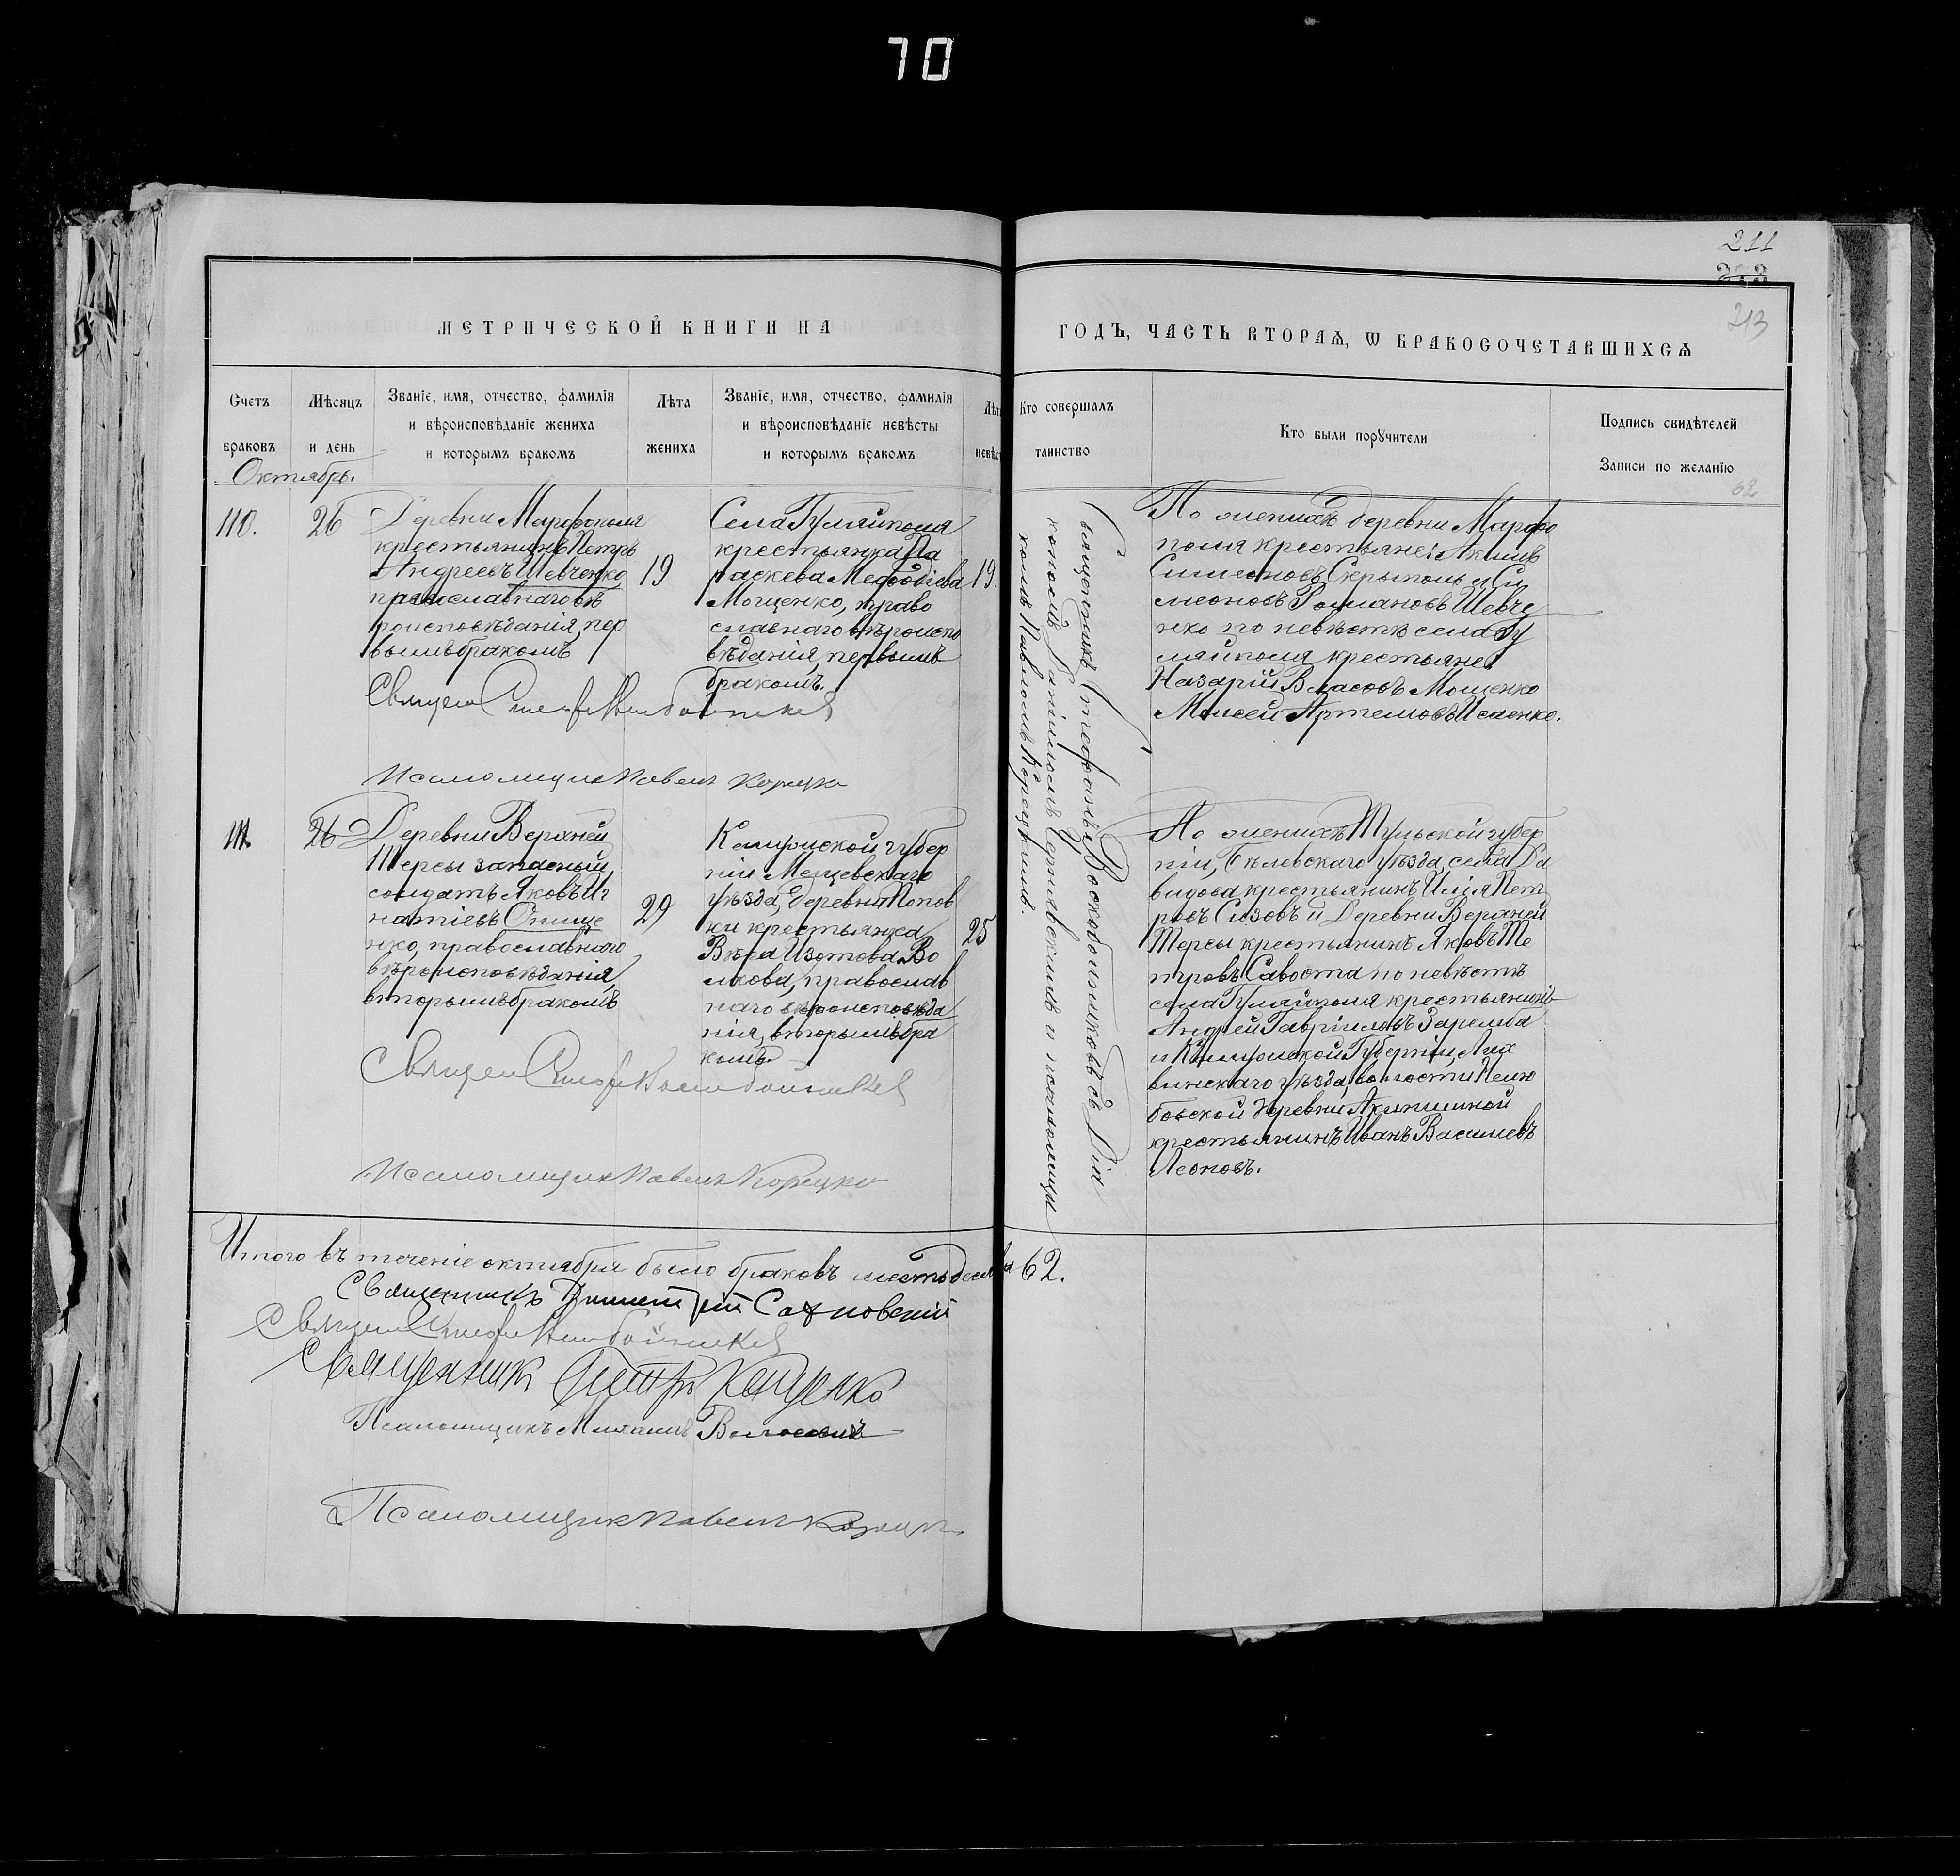 70
211
213
МЕТРИЧЕСКОЙ КНИГИ НА
ГОДЪ, ЧАСТЬ ВТОРАЯ, Ѡ БРАКОСОЧЕТАВШИХСЯ
Счетъ браковъ
Мѣсяцъ и день
Званіе, имя, отчество, фамилія
и вѣроисповѣданіе жениха
и которымъ бракомъ
Лѣта жениха
Званіе, имя, отчество, фамилія
и вѣроисповѣданіе невѣсты
и которымъ бракомъ
Лѣта невѣст
Кто совершалъ таинство
Кто были порꙋчители
Подпись свидѣтелей
Записи по желанію
62
Октябрь.
110.
26
Деревни Марфополя
крестьянинъ Петръ
Андреевъ Шевченко
православнаго вѣ
роисповѣданія, пер
вымъ бракомъ
19
Села Гуляйполя
крестьянка Па
раскева Меѳодіева
Мощенко, право
славнаго вѣроиспо
вѣданія, первымъ
бракомъ.
19.
Священникъ Стефанъ Воскобойниковъ съ Діа
кономъ
и псаломщи
комъ Павломъ Корецкимъ.
По женихѣ деревни Марфо
поля крестьяне: Акимъ
Симеоновъ Скрыполь и Си
меоновъ Романовъ Шевче
нко по невѣстѣ села Гу
ляйполя крестьяне
Назарій Власовъ Мощенко
Моисей Артемовъ Исаенко.
Псаломщик Павелъ Корецкий
111.
26
Деревни Верхней
Терсы запасный
солдатъ Яковъ Иг
натіевъ Онище
нко, православнаго
вѣроисповѣданія,
вторымъ бракомъ
29
Калужской губер
ніи Мещевскаго
уѣзда, деревни Попов
ки крестьянка
Вѣра Изотова Во
лкова, православ
наго вѣроисповѣда
нія, вторымъ бра
комъ
25
По женихѣ Тульской губер
ніи, Бѣлевскаго уѣзда, села Да
видова крестьянинъ Илія Пет
ровъ Сизовъ и Деревни Верхней
Терсы крестьянинъ Яковъ Пе
тровъ Савоста по невѣстѣ
села Гуляйполя крестьянинъ
Андрей Гавріиловъ Заремба
и Калужской Губерніи, Лих
винскаго уѣзда, волости Пелю
бовской деревни Акиньшиной
крестьянинъ Иванъ Васильевъ
Леоновъ.
Псаломщик Павелъ Корецкий
Итого въ теченіе октября было браковъ шестьдесятъ два 62.
Священникъ Димитрій Сахновскій
Священник Петръ Кащенко
Псаломщикъ Михаилъ
Псаломщик Павелъ Корецкий